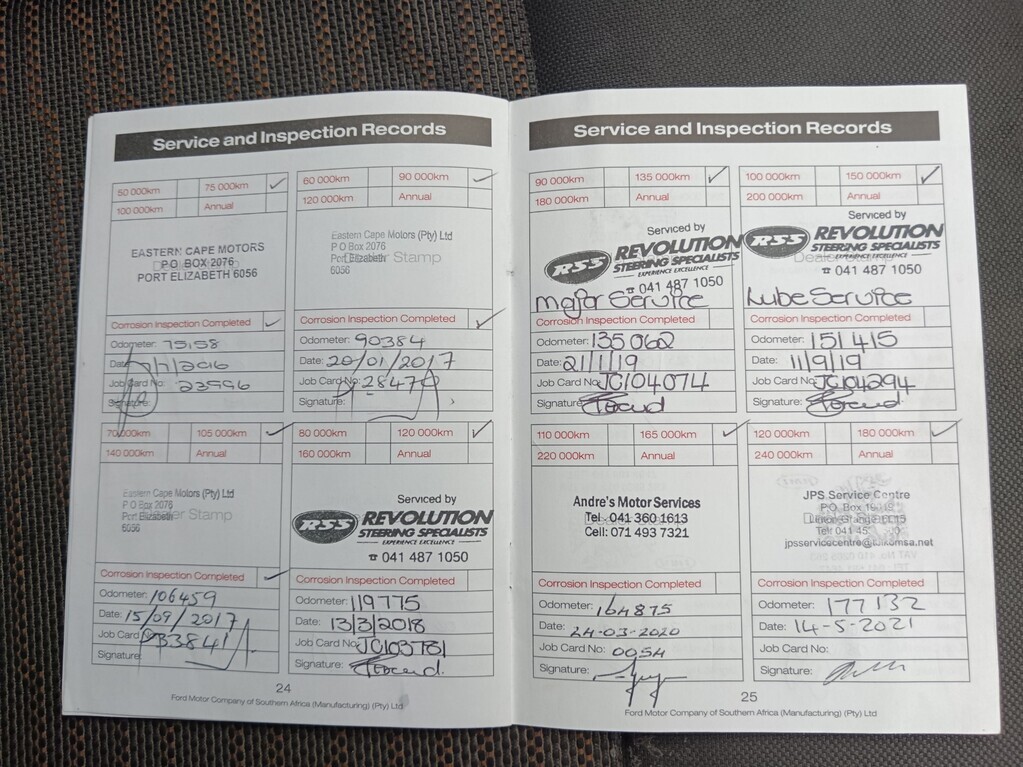 Service and Inspection Records
50 000km 75 000km ✓
100 000km Annual
EASTERN CAPE MOTORS
P.O. BOX 2076
PORT ELIZABETH 6056
Corrosion Inspection Completed ✓
Odometer: 75158
Date: /1/2016
Job Card No: 23996
Signature:
60 000km 90 000km ✓
120 000km Annual
Eastern Cape Motors (Pty) Ltd
P O Box 2076
Port Elizabeth Stamp
6056
Corrosion Inspection Completed ✓
Odometer: 90384
Date: 20/01/2017
Job Card No: 28470
Signature:
70 000km 105 000km ✓
140 000km Annual
Eastern Cape Motors (Pty) Ltd
P O Box 2076
Port Elizabeth Stamp
6056
Corrosion Inspection Completed ✓
Odometer: 106459
Date: 15/09/2017
Job Card No 33841
Signature:
80 000km 120 000km ✓
160 000km Annual
Serviced by
RSS REVOLUTION
STEERING SPECIALISTS
EXPERIENCE EXCELLENCE
☎ 041 487 1050
Corrosion Inspection Completed
Odometer: 119775
Date: 13/3/2018
Job Card No: JC103781
Signature:
24
Ford Motor Company of Southern Africa (Manufacturing) (Pty) Ltd
Service and Inspection Records
90 000km 135 000km ✓
180 000km Annual
Serviced by
RSS REVOLUTION
STEERING SPECIALISTS
EXPERIENCE EXCELLENCE
☎ 041 487 1050
Major Service
Corrosion Inspection Completed
Odometer: 135062
Date: 21/1/19
Job Card No: JC104074
Signature:
100 000km 150 000km ✓
200 000km Annual
Serviced by
RSS REVOLUTION
STEERING SPECIALISTS
EXPERIENCE EXCELLENCE
Dealer Stamp
☎ 041 487 1050
Lube Service
Corrosion Inspection Completed
Odometer: 151415
Date: 11/9/19
Job Card No: JC104294
Signature:
110 000km 165 000km ✓
220 000km Annual
Andre's Motor Services
Tel: 041 360 1613
Cell: 071 493 7321
Corrosion Inspection Completed
Odometer: 164875
Date: 24-03-2020
Job Card No: 0054
Signature:
120 000km 180 000km ✓
240 000km Annual
JPS Service Centre
P.O. Box
Tel: 041 45
jpsservicecentre@telkomsa.net
Corrosion Inspection Completed
Odometer: 177132
Date: 14-5-2021
Job Card No:
Signature:
25
Ford Motor Company of Southern Africa (Manufacturing) (Pty) Ltd